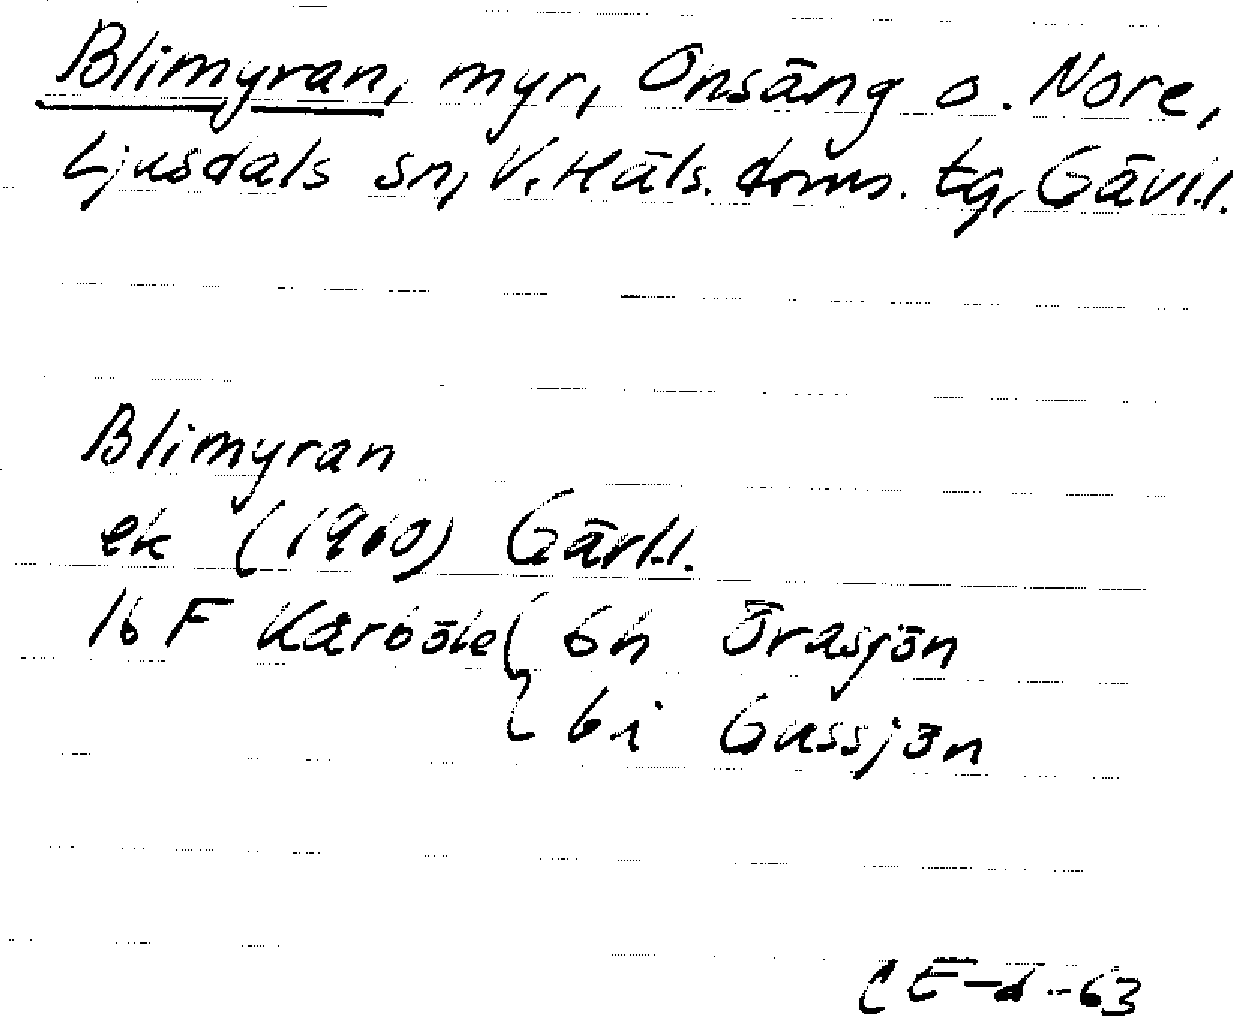 Blimyran, myr, Onsäng o. Nore,
Ljusdals sn, V. Häls. doms. tg, Gävl.l.
Blimyran
ek (1960) Gävl.l.
16 F Kårböle 6h Örasjön
6i Gussjön
CE-d-63